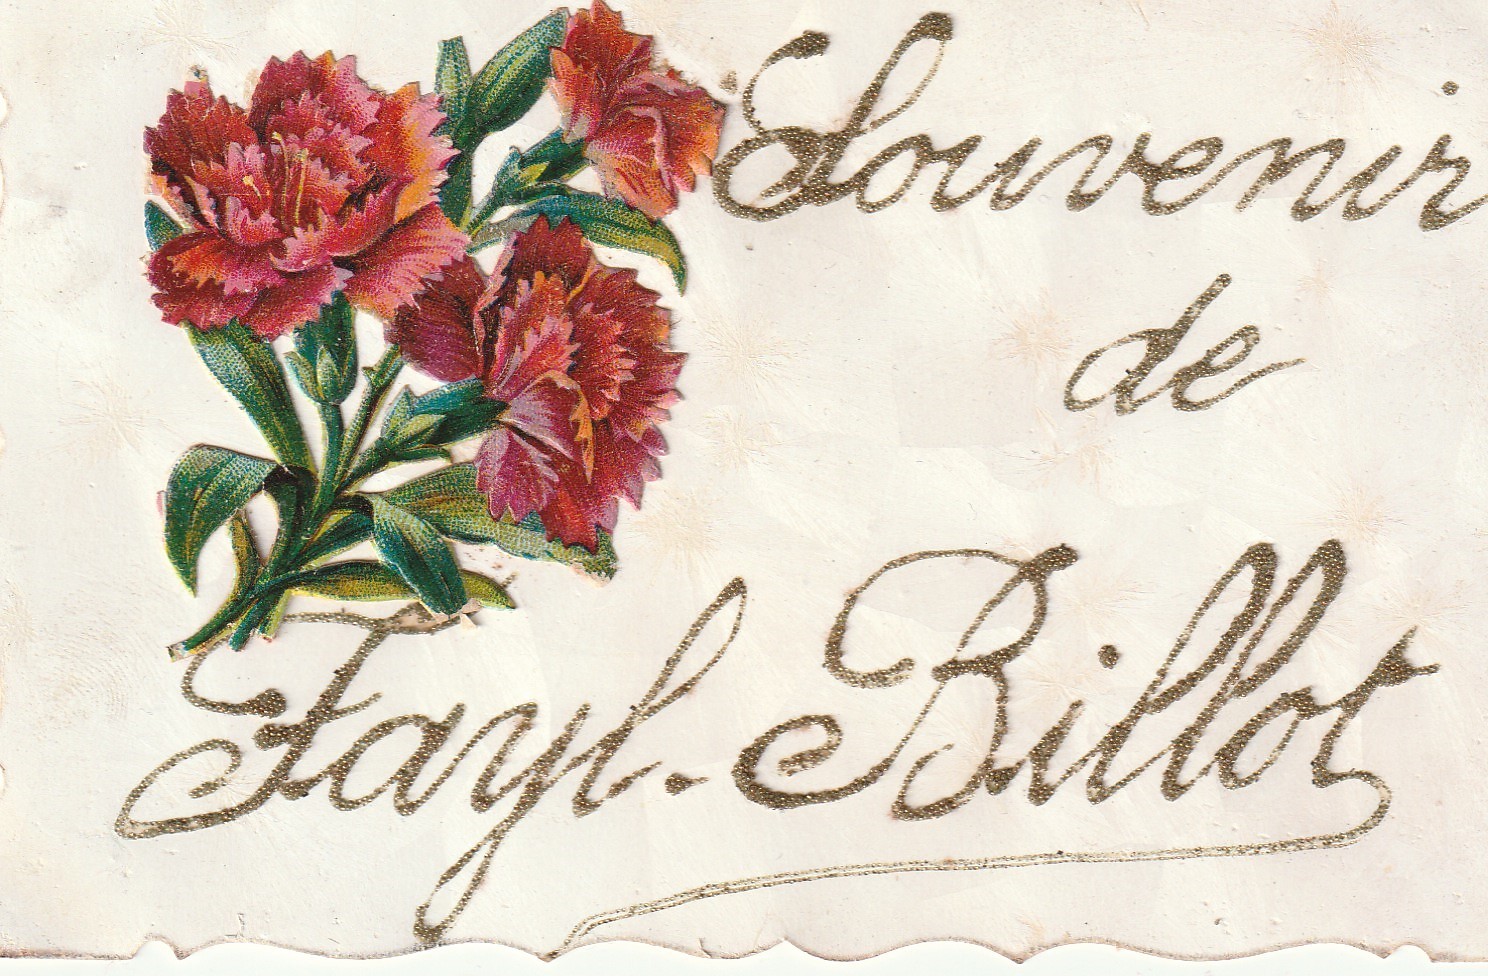 Souvenir
de
Fayl-Billot